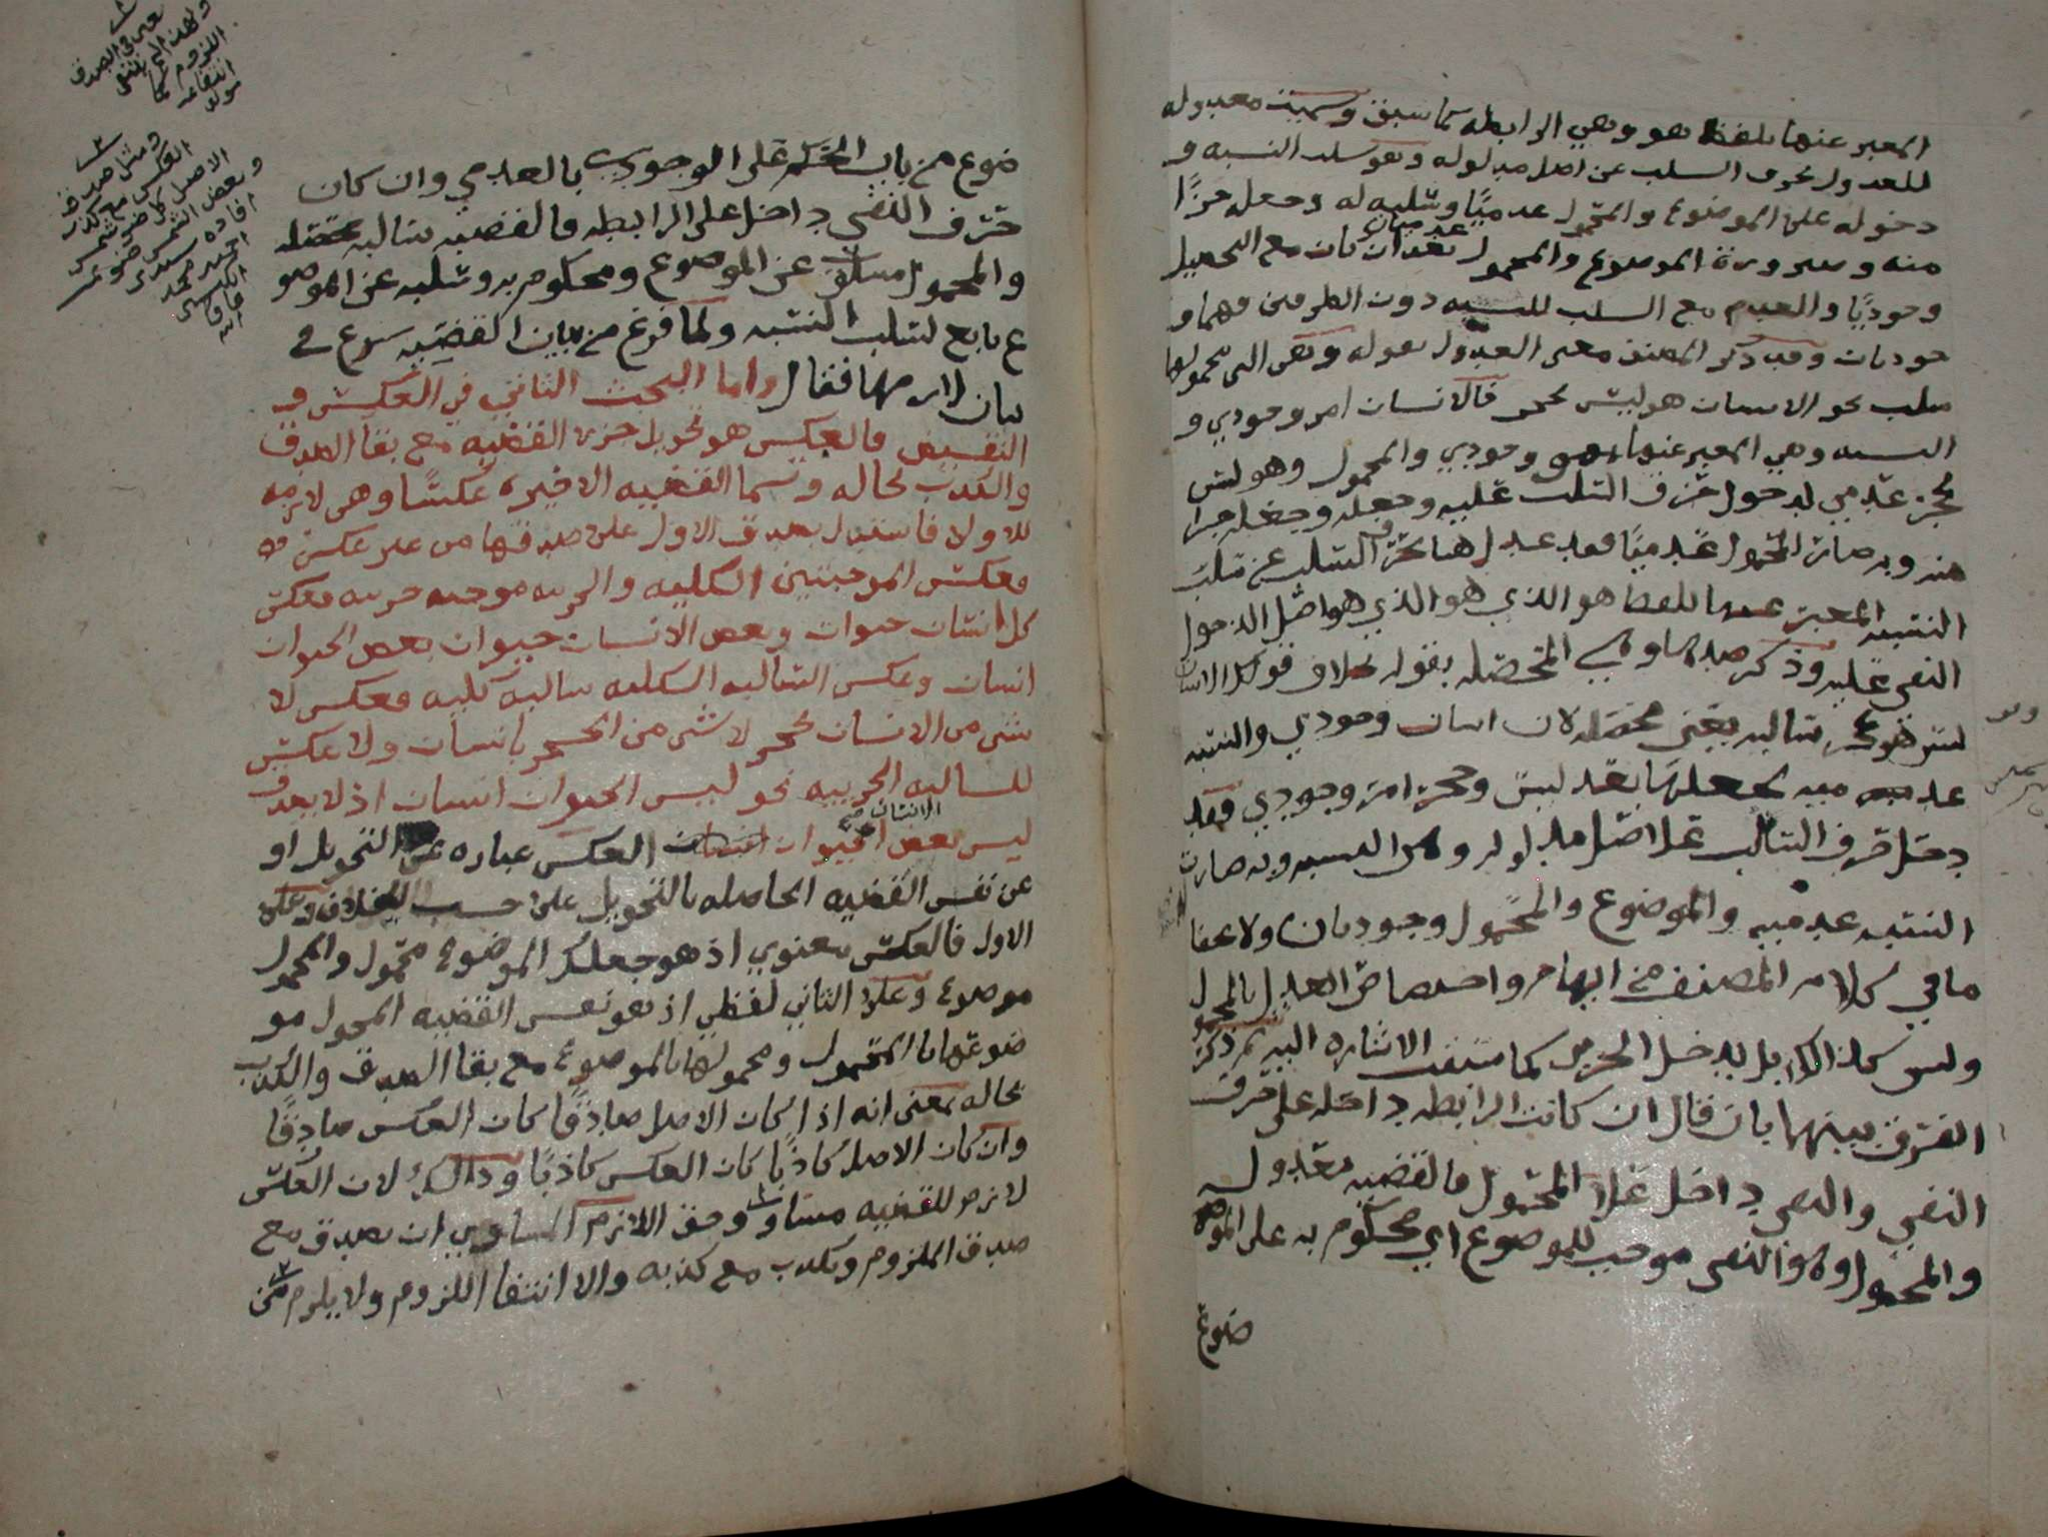 المعبر عنها بلفظ هو وهي الرابطه كما سبق وسميت معدوله
للعدول بحرف السلب عن اصل مدلوله وهو سلب النسبه و
دخوله على الموضوع والمحمول عدميًا وسلبه له وجعله جزًا
منه وصيرورة الموضوع والمحمول عدميان بعد ان كان مع التحصيل
وجوديًا والعدم مع السلب للنسبه دون الطرفين فهما و
جوديان وقد ذكر المصنف معنى العدول بقوله وهي التي محمولها
سلب نحو الانسان هو ليس بحجر فالانسان امر وجودي و
النسبه وهي المعبر عنها بهو وجودي والمحمول وهو ليس
بحجر عدمي لدخول حرف السلب عليه وجعله جزا
منه وبه صار المحمول عدميًا فقد عدل هنا بحرف السلب عن سلب
النسبه المعبر عنها بلفظ هو الذي هو الذي هو اصل الدخول
النفي عليه وذكر ضدها وهي المحصله بقوله بخلاف قولك الانسان
ليس هو بحجر سالبه يعني محصله لان انسان وجودي والنسبه
عدميه بجعلها بعد ليس وحجر امر وجودي فقد
دخل حرف السالب على اصل مدلوله وهي النسبه وبه صارت
النسبه عدميه والموضوع والمحمول وجوديان ولا يخفا
ما في كلام المصنف من ايهام واختصاص العدل بالمحمول
وليس كذالك بل يدخل الجزءين كما سبقت الاشاره اليه ثم ذكر
الفرق بينهما بان قال ان كانت الرابطه داخله على حرف
النفي والنفي داخل على المحمول فالقضيه معدوله
والمحمول وهو النفي موجب للموضوع اي محكوم به على المو
ضوع
ضوع من باب الحكم على الوجودي بالعدمي وان كان
حرف النفي داخل على الرابطه فالقضيه سالبه محصله
والمحمول مسلوب عن الموضوع ومحكوم به وسلبه عن الموضو
ع تابع لسلب النسبه ولما فرغ من بيان القضيه شرع في
بيان لازمها فقال واما البحث الثاني في العكس و
النقيض فالعكس هو تحويل جزى القضيه مع بقا الصدق
والكذب بحاله وتسما القضيه الاخيره عكسًا وهي لازمه
للاولا فاستدل بصدق الاول على صدقها من غير عكس
فعكس الموجبتين الكليه والجزييه موجبه جزييه فعكس
كل انسان حيوان وبعض الانسان حيوان بعض الحيوان
انسان وعكس السالبه الكليه سالبه كليه فعكس لا
شي من الانسان بحجر لا شي من الحجر بانسان ولا عكس
للسالبه الجزييه نحو ليس الحيوان انسان اذ لا يصدق
ليس بعض الحيوان الانسان صح العكس عباره عن التحويل او
عن نفس القضيه الحاصله بالتحويل على حسب الخلاف وعلى
الاول فالعكس معنوي اذ هو جعلك الموضوع محمول والمحمول
موضوع وعلى الثاني لفظي اذ هو نفس القضيه المحول مو
ضوعها بالمحمول ومحمولها بالموضوع مع بقا الصدق والكذب
بحاله بمعنى انه اذا كان الاصل صادقًا كان العكس صادقًا
وان كان الاصل كاذبًا كان العكس كاذبًا وذالك لان العكس
لازم للقضيه مساو وحق اللازم المساوي ان يصدق مع
صدق الملزوم ويكذب مع كذبه والا انتفا اللزوم ولا يلزم من